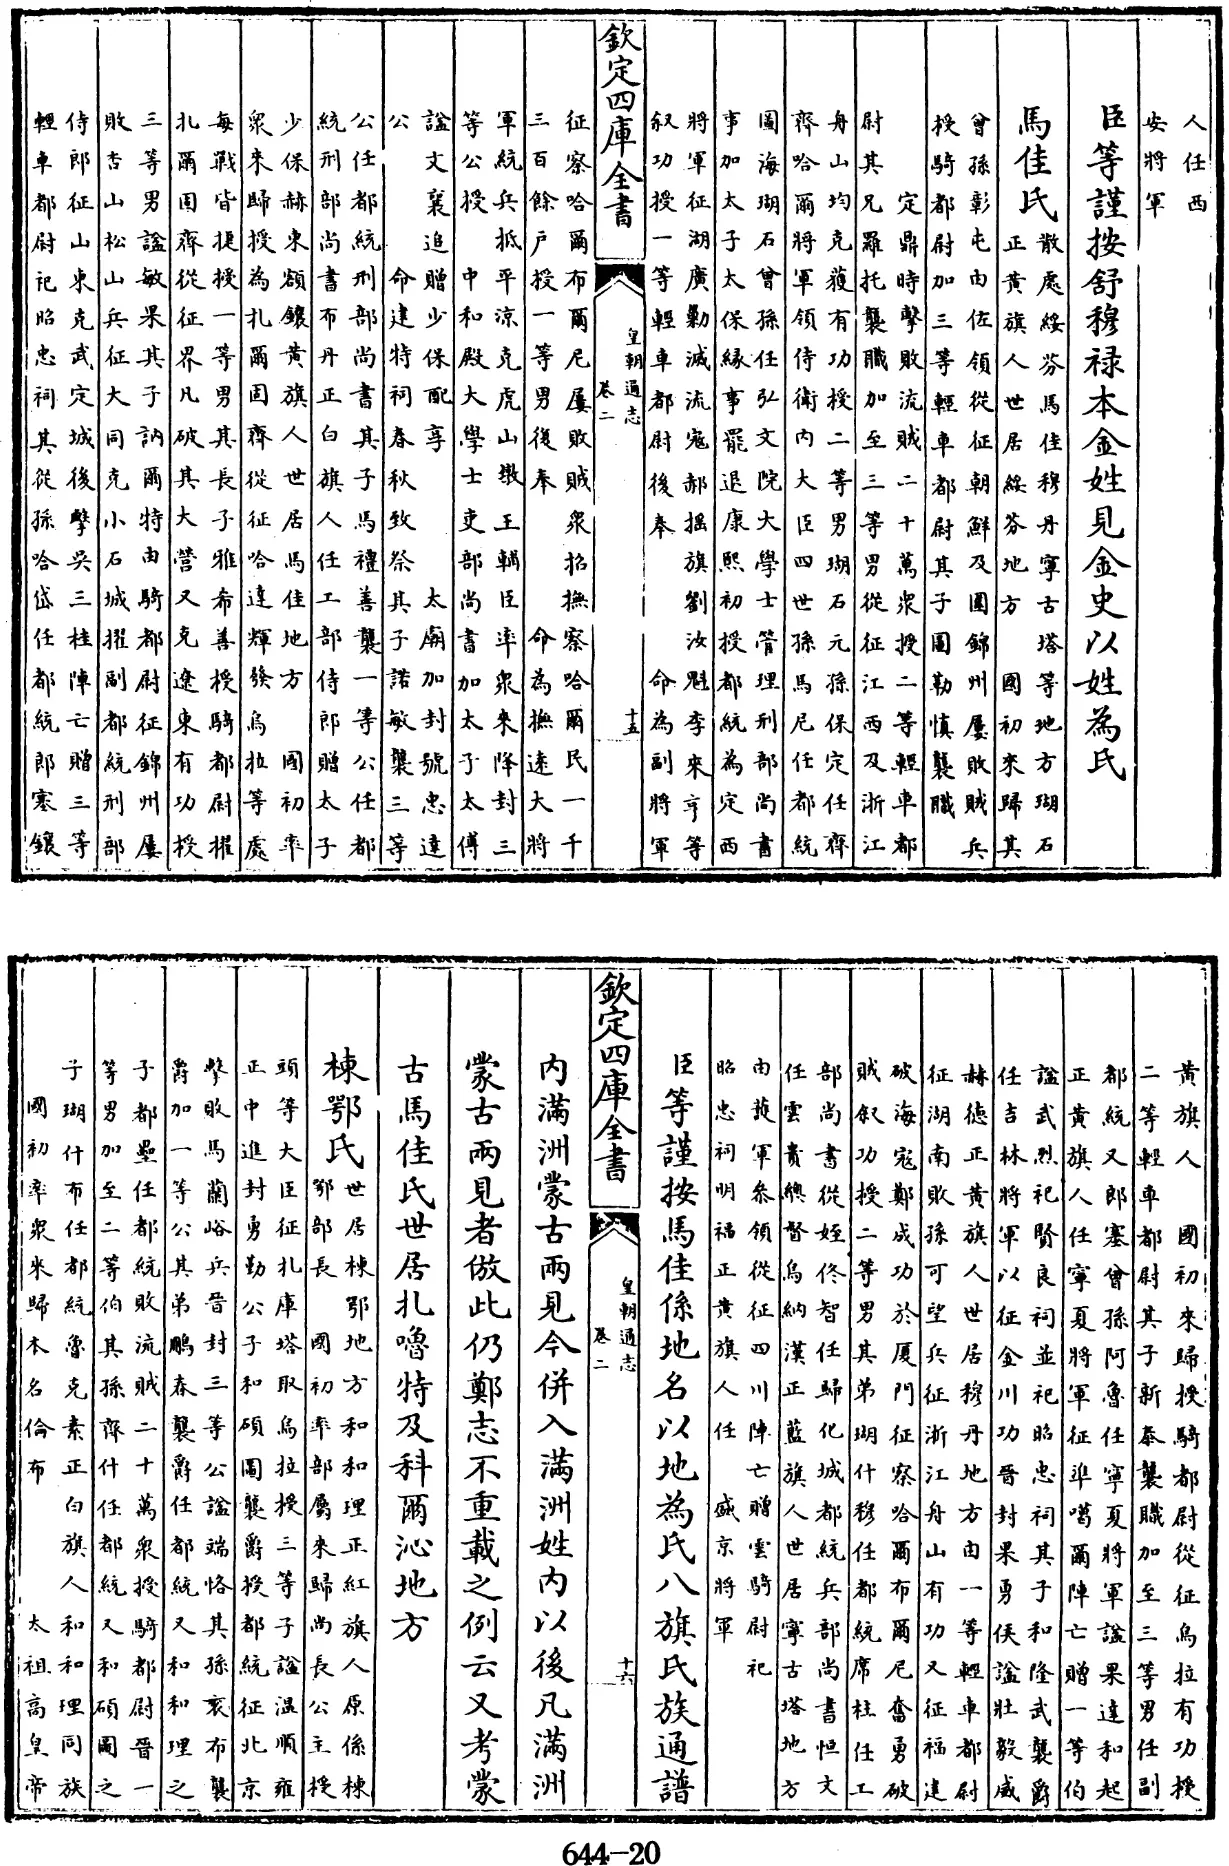 人任西
安將軍
臣等謹按舒穆禄本金姓見金史以姓為氏
馬佳氏 散處綏芬馬佳穆丹寧古塔等地方瑚石
正黃旗人世居綏芬地方 國初來歸其
曾孫彰屯由佐領從征朝鮮及圍錦州屢敗賊兵
授騎都尉加三等輕車都尉其子圖勒慎襲職
定鼎時擊敗流賊二十萬衆授二等輕車都
尉其兄羅托襲職加至三等男從征江西及浙江
舟山均克獲有功授二等男瑚石元孫保定任齊
齊哈爾將軍領侍衛内大臣四世孫馬尼任都統
圖海瑚石曾孫任弘文院大學士管理刑部尚書
事加太子太保縁事罷退康熙初授都統為定西
將軍征湖廣勦滅流寇郝揺旗劉汝魁李來亨等
叙功授一等輕車都尉後奉 命為副將軍
欽定四庫全書
皇朝通志
卷二
十五
征察哈爾布爾尼屢敗賊衆招撫察哈爾民一千
三百餘户授一等男後奉 命為撫遠大將
軍統兵抵平涼克虎山墩王輔臣率衆來降封三
等公授 中和殿大學士吏部尚書加太子太傅
諡文襄追贈少保配享 太廟加封號忠達
公 命建特祠春秋致祭其子諾敏襲三等
公任都統刑部尚書其子馬禮善襲一等公任都
統刑部尚書布丹正白旗人任工部侍郎贈太子
少保赫東額鑲黃旗人世居馬佳地方 國初率
衆來歸授為扎爾固齊從征哈達輝發烏拉等處
每戰皆捷授一等男其長子雅希善授騎都尉擢
扎爾固齊從征界凡破其大營又克遼東有功授
三等男諡敏果其子訥爾特由騎都尉征錦州屢
敗杏山松山兵征大同克小石城擢副都統刑部
侍郎征山東克武定城後擊吳三桂陣亡贈三等
輕車都尉祀昭忠祠其從孫哈岱任都統郎塞鑲
黃旗人 國初來歸授騎都尉從征烏拉有功授
二等輕車都尉其子新泰襲職加至三等男任副
都統又郎塞曾孫阿魯任寧夏將軍諡果達和起
正黃旗人任寧夏將軍征準噶爾陣亡贈一等伯
諡武烈祀賢良祠並祀昭忠祠其子和隆武襲爵
任吉林將軍以征金川功晉封果勇侯諡壯毅威
赫德正黃旗人世居穆丹地方由一等輕車都尉
征湖南敗孫可望兵征浙江舟山有功又征福建
破海寇鄭成功於厦門征察哈爾布爾尼奮勇破
賊叙功授二等男其弟瑚什穆任都統席柱任工
部尚書從姪佟智任歸化城都統兵部尚書恒文
任雲貴總督烏納漢正藍旗人世居寧古塔地方
由䕶軍叅領從征四川陣亡贈雲騎尉祀
昭忠祠明福正黃旗人任 盛京將軍
臣等謹按馬佳係地名以地為氏八旗氏族通譜
欽定四庫全書
皇朝通志
卷二
十六
内滿洲蒙古兩見今併入滿洲姓内以後凡滿洲
蒙古兩見者倣此仍鄭志不重載之例云又考蒙
古馬佳氏世居扎嚕特及科爾沁地方
棟鄂氏 世居棟鄂地方和和理正紅旗人原係棟
鄂部長 國初率部屬來歸尚長公主授
頭等大臣征扎庫塔取烏拉授三等子諡温順雍
正中進封勇勤公子和碩圖襲爵授都統征北京
擊敗馬蘭峪兵晉封三等公諡端恪其孫衮布襲
爵加一等公其弟鵬春襲爵任都統又和和理之
子都壘任都統敗流賊二十萬衆授騎都尉晉一
等男加至二等伯其孫齊什任都統又和碩圖之
子瑚什布任都統魯克素正白旗人和和理同族
國初率衆來歸本名倫布 太祖高皇帝
644-20